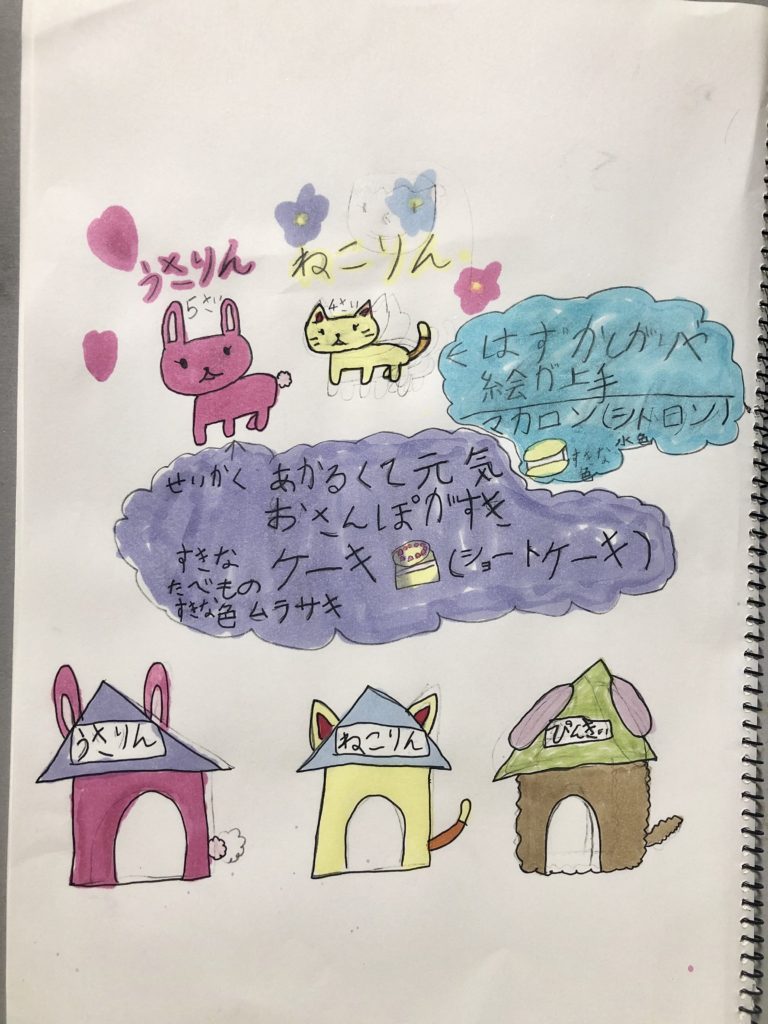 うさりん
ねこりん
5さい
4さい
はずかしがりや
絵が上手
マカロン(シトロン)
すきな色 水色
せいかく あかるくて元気
おさんぽがすき
すきなたべもの ケーキ (ショートケーキ)
すきな色 ムラサキ
うさりん
ねこりん
ぴんきぃ